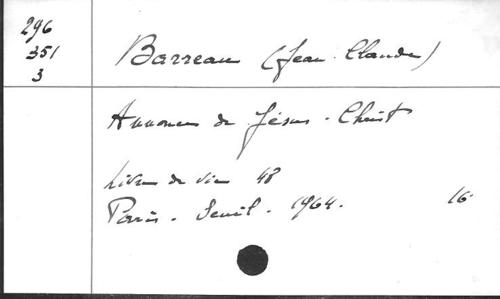 296
351
3
Barreau (Jean-Claude)
Annonce de Jésus-Christ
Livre de vie 48
Paris. Seuil. 1964. 16